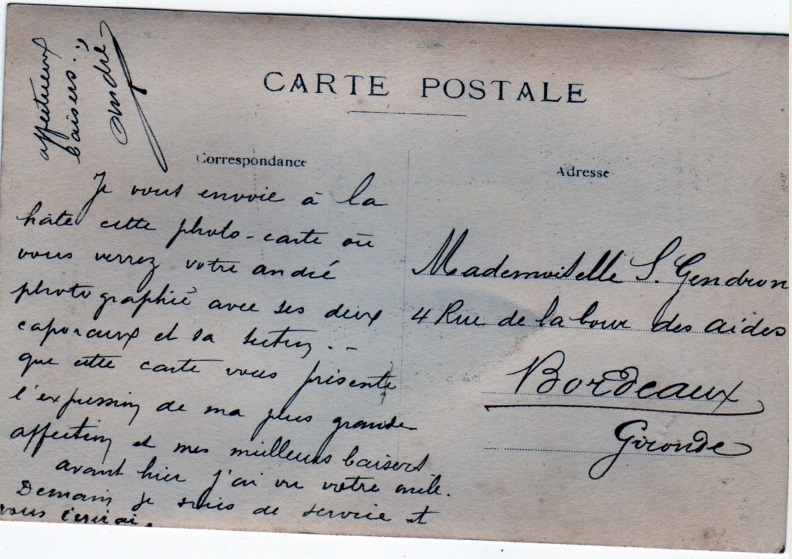 CARTE POSTALE
Correspondance
Je vous envoie à la
hâte cette photo-carte où
vous verrez votre andré
photographié avec ses deux
caporaux et sa section . --
que cette carte vous présente
l'expression de ma plus grande
affection et mes meilleurs baisers
avant hier j'ai vu votre oncle.
Demain je suis de service et
vous écrirai.
affectueux
baisers..
André
Adresse
Mademoiselle S. Gendron
4 Rue de la Cour des aides
Bordeaux
Gironde